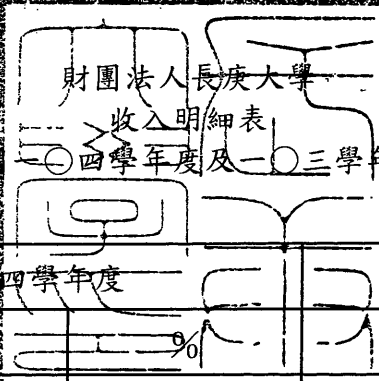 財團法人長庚大學
收入明細表
一〇四學年度及一〇三學年
四學年度
%